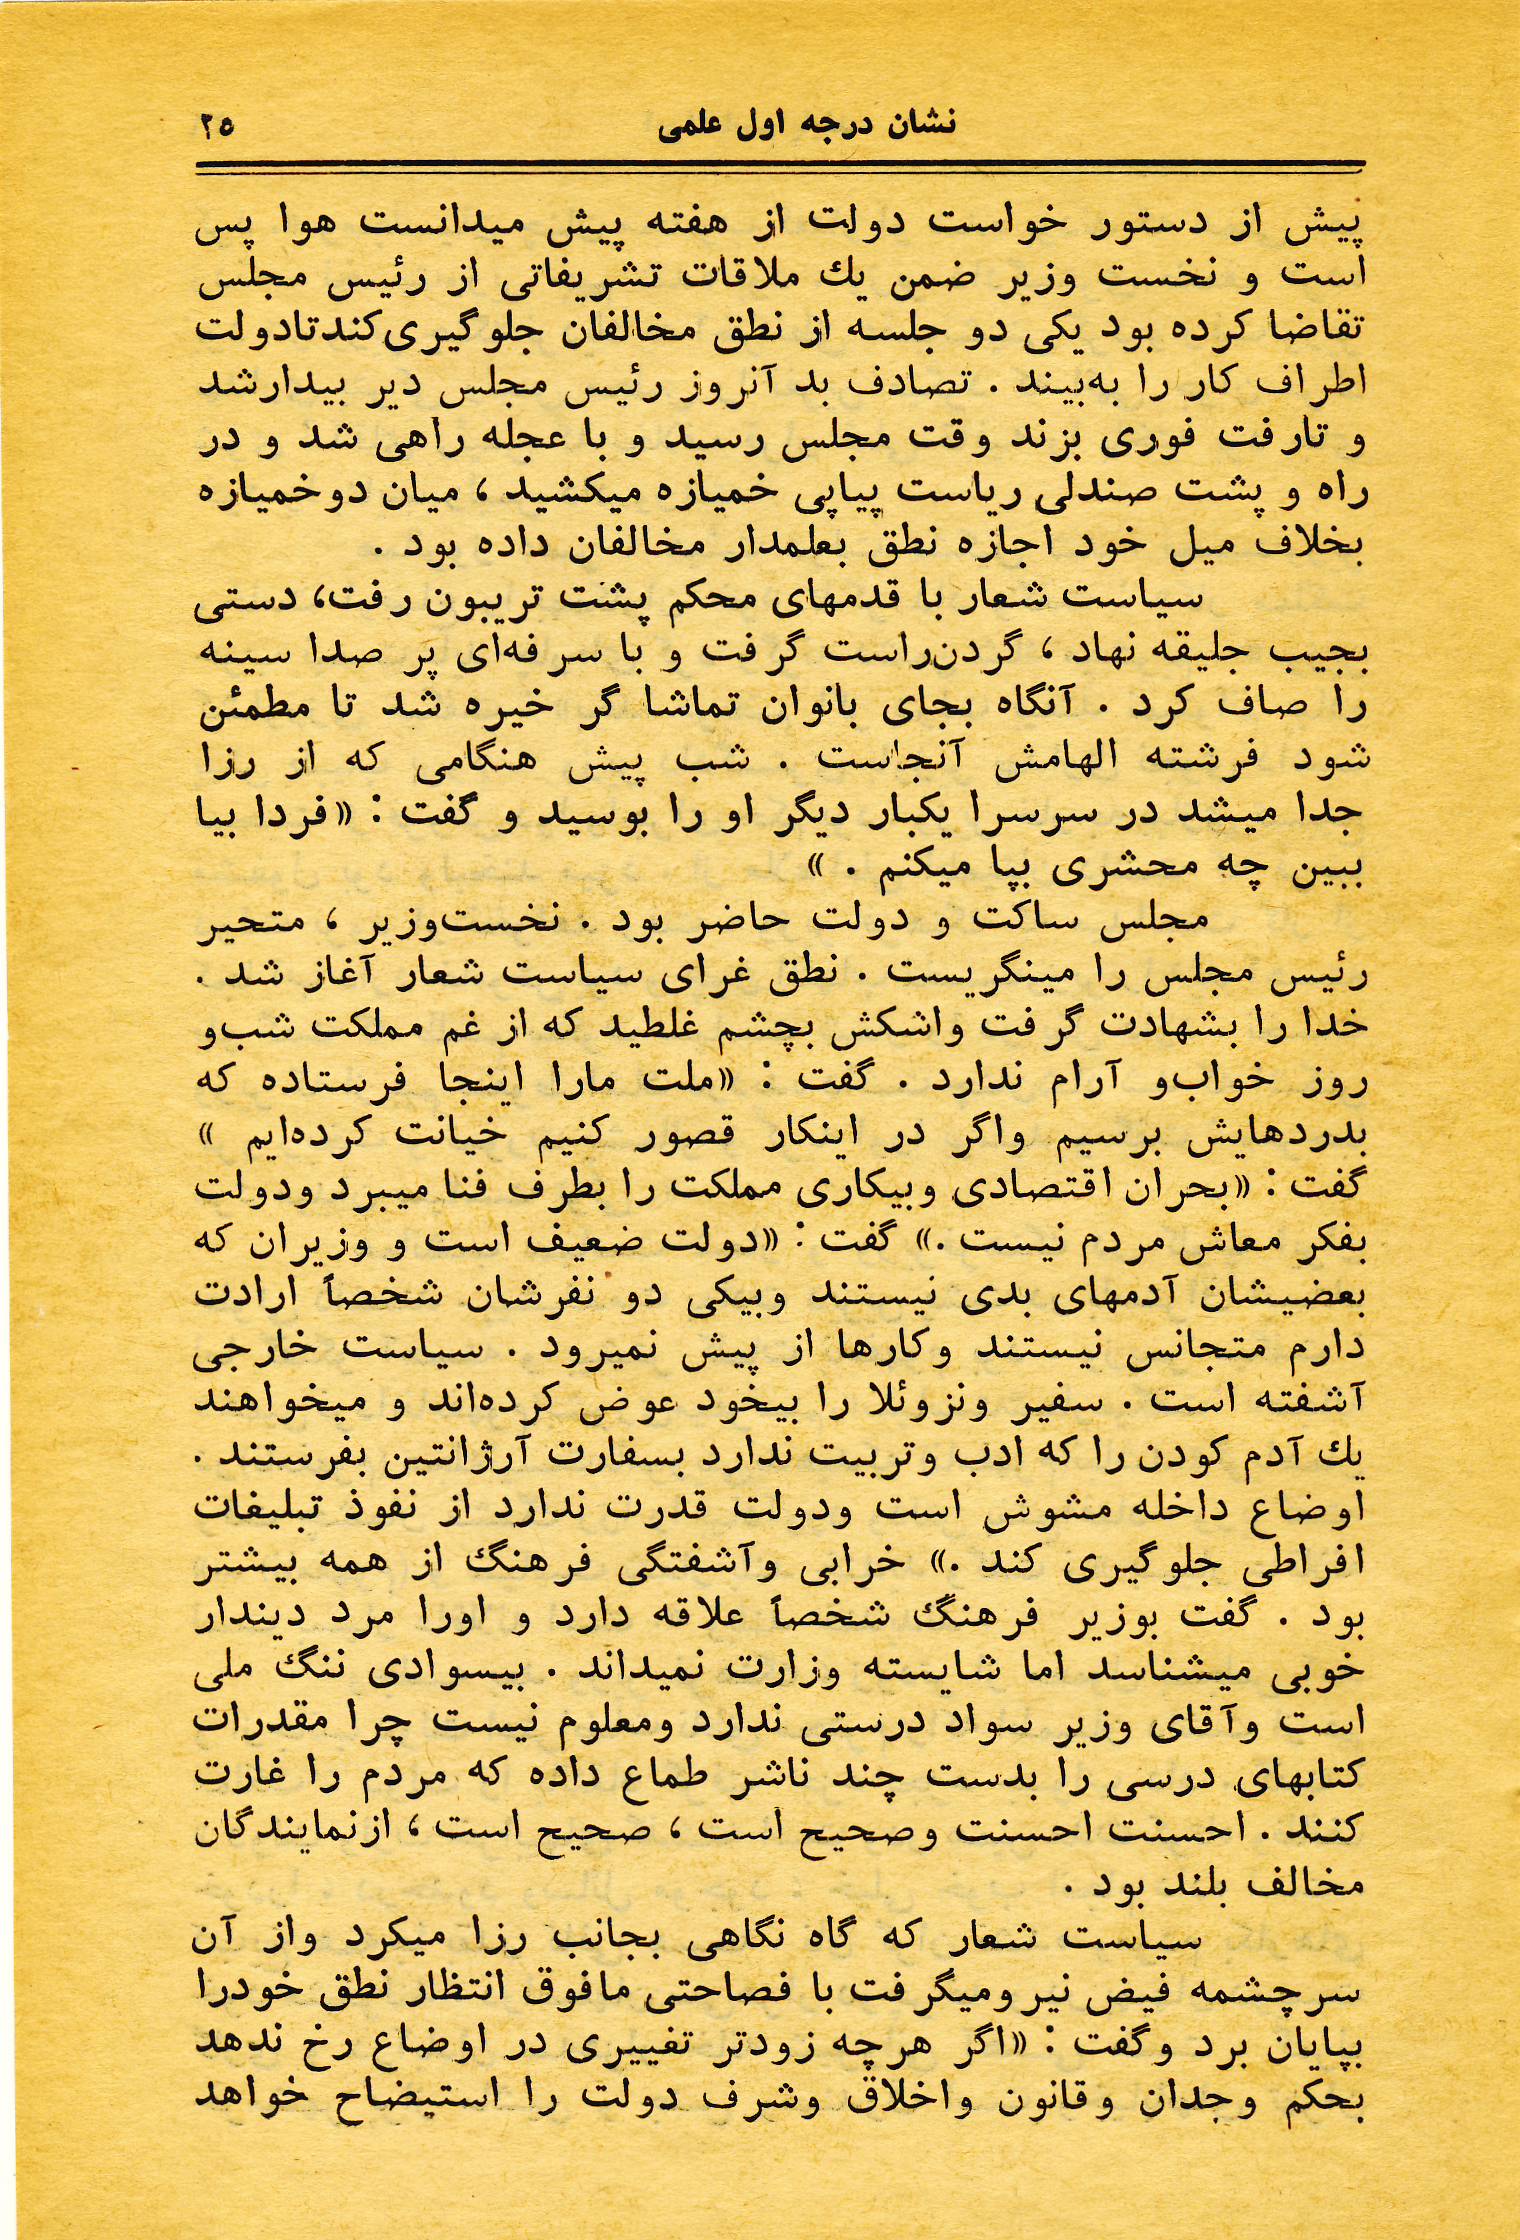 نشان درجه اول علمی
۲۵
پیش از دستور خواست دولت از هفته پیش میدانست هوا پس
است و نخست وزیر ضمن یك ملاقات تشریفاتی از رئیس مجلس
تقاضا کرده بود یکی دو جلسه از نطق مخالفان جلوگیری‌کندتادولت
اطراف کار را به‌بیند . تصادف بد آنروز رئیس مجلس دیر بیدارشد
و تارفت فوری بزند وقت مجلس رسید و با عجله راهی شد و در
راه و پشت صندلی ریاست پیاپی خمیازه میکشید ، میان دوخمیازه
بخلاف میل خود اجازه نطق بعلمدار مخالفان داده بود .
سیاست شعار با قدمهای محکم پشت تریبون رفت، دستی
بجیب جلیقه نهاد ، گردن‌راست گرفت و با سرفه‌ای پر صدا سینه
را صاف کرد . آنگاه بجای بانوان تماشا گر خیره شد تا مطمئن
شود فرشته الهامش آنجاست . شب پیش هنگامی که از رزا
جدا میشد در سرسرا یکبار دیگر او را بوسید و گفت : «فردا بیا
ببین چه محشری بپا میکنم . »
مجلس ساکت و دولت حاضر بود . نخست‌وزیر ، متحیر
رئیس مجلس را مینگریست . نطق غرای سیاست شعار آغاز شد .
خدا را بشهادت گرفت واشکش بچشم غلطید که از غم مملکت شب‌و
روز خواب‌و آرام ندارد . گفت : «ملت مارا اینجا فرستاده که
بدردهایش برسیم واگر در اینکار قصور کنیم خیانت کرده‌ایم »
گفت : «بحران اقتصادی وبیکاری مملکت را بطرف فنا میبرد ودولت
بفکر معاش مردم نیست .» گفت : «دولت ضعیف است و وزیران که
بعضیشان آدمهای بدی نیستند وبیکی دو نفرشان شخصاً ارادت
دارم متجانس نیستند وکارها از پیش نمیرود . سیاست خارجی
آشفته است . سفیر ونزوئلا را بیخود عوض کرده‌اند و میخواهند
یك آدم کودن را که ادب وتربیت ندارد بسفارت آرژانتین بفرستند .
اوضاع داخله مشوش است ودولت قدرت ندارد از نفوذ تبلیغات
افراطی جلوگیری کند .» خرابی وآشفتگی فرهنگ از همه بیشتر
بود . گفت بوزیر فرهنگ شخصاً علاقه دارد و اورا مرد دیندار
خوبی میشناسد اما شایسته وزارت نمیداند . بیسوادی ننگ ملی
است وآقای وزیر سواد درستی ندارد ومعلوم نیست چرا مقدرات
کتابهای درسی را بدست چند ناشر طماع داده که مردم را غارت
کنند . احسنت احسنت وصحیح است ، صحیح است ، ازنمایندگان
مخالف بلند بود .
سیاست شعار که گاه نگاهی بجانب رزا میکرد واز آن
سرچشمه فیض نیرومیگرفت با فصاحتی مافوق انتظار نطق خودرا
بپایان برد وگفت : «اگر هرچه زودتر تغییری در اوضاع رخ ندهد
بحکم وجدان وقانون واخلاق وشرف دولت را استیضاح خواهد